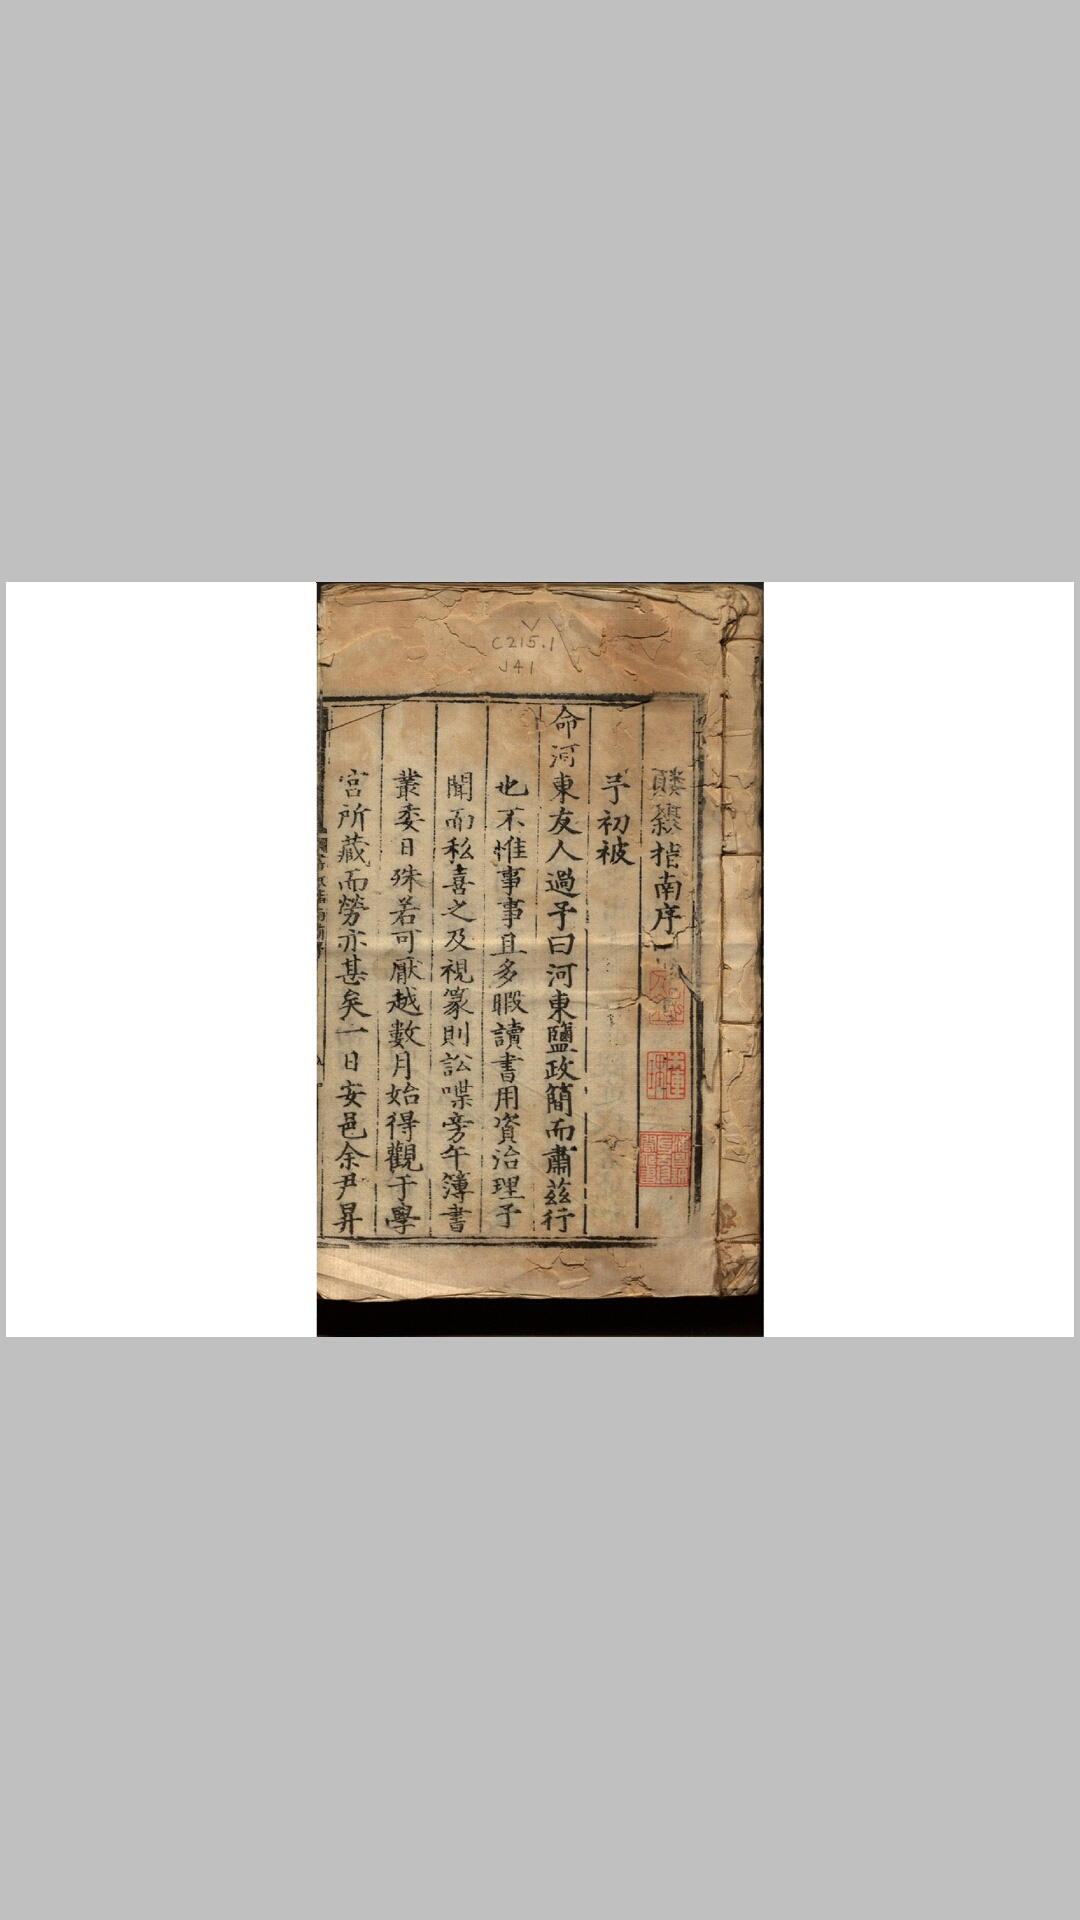 C215.1
J41
指南序
予初被
命河東友人過予曰河東鹽政簡而肅茲行
也不惟事事且多暇讀書用資治理予
聞而私喜之及視篆則訟喋旁午簿書
叢委日殊若可厭越數月始得觀于學
宮所藏而勞亦甚矣一日安邑余尹昇